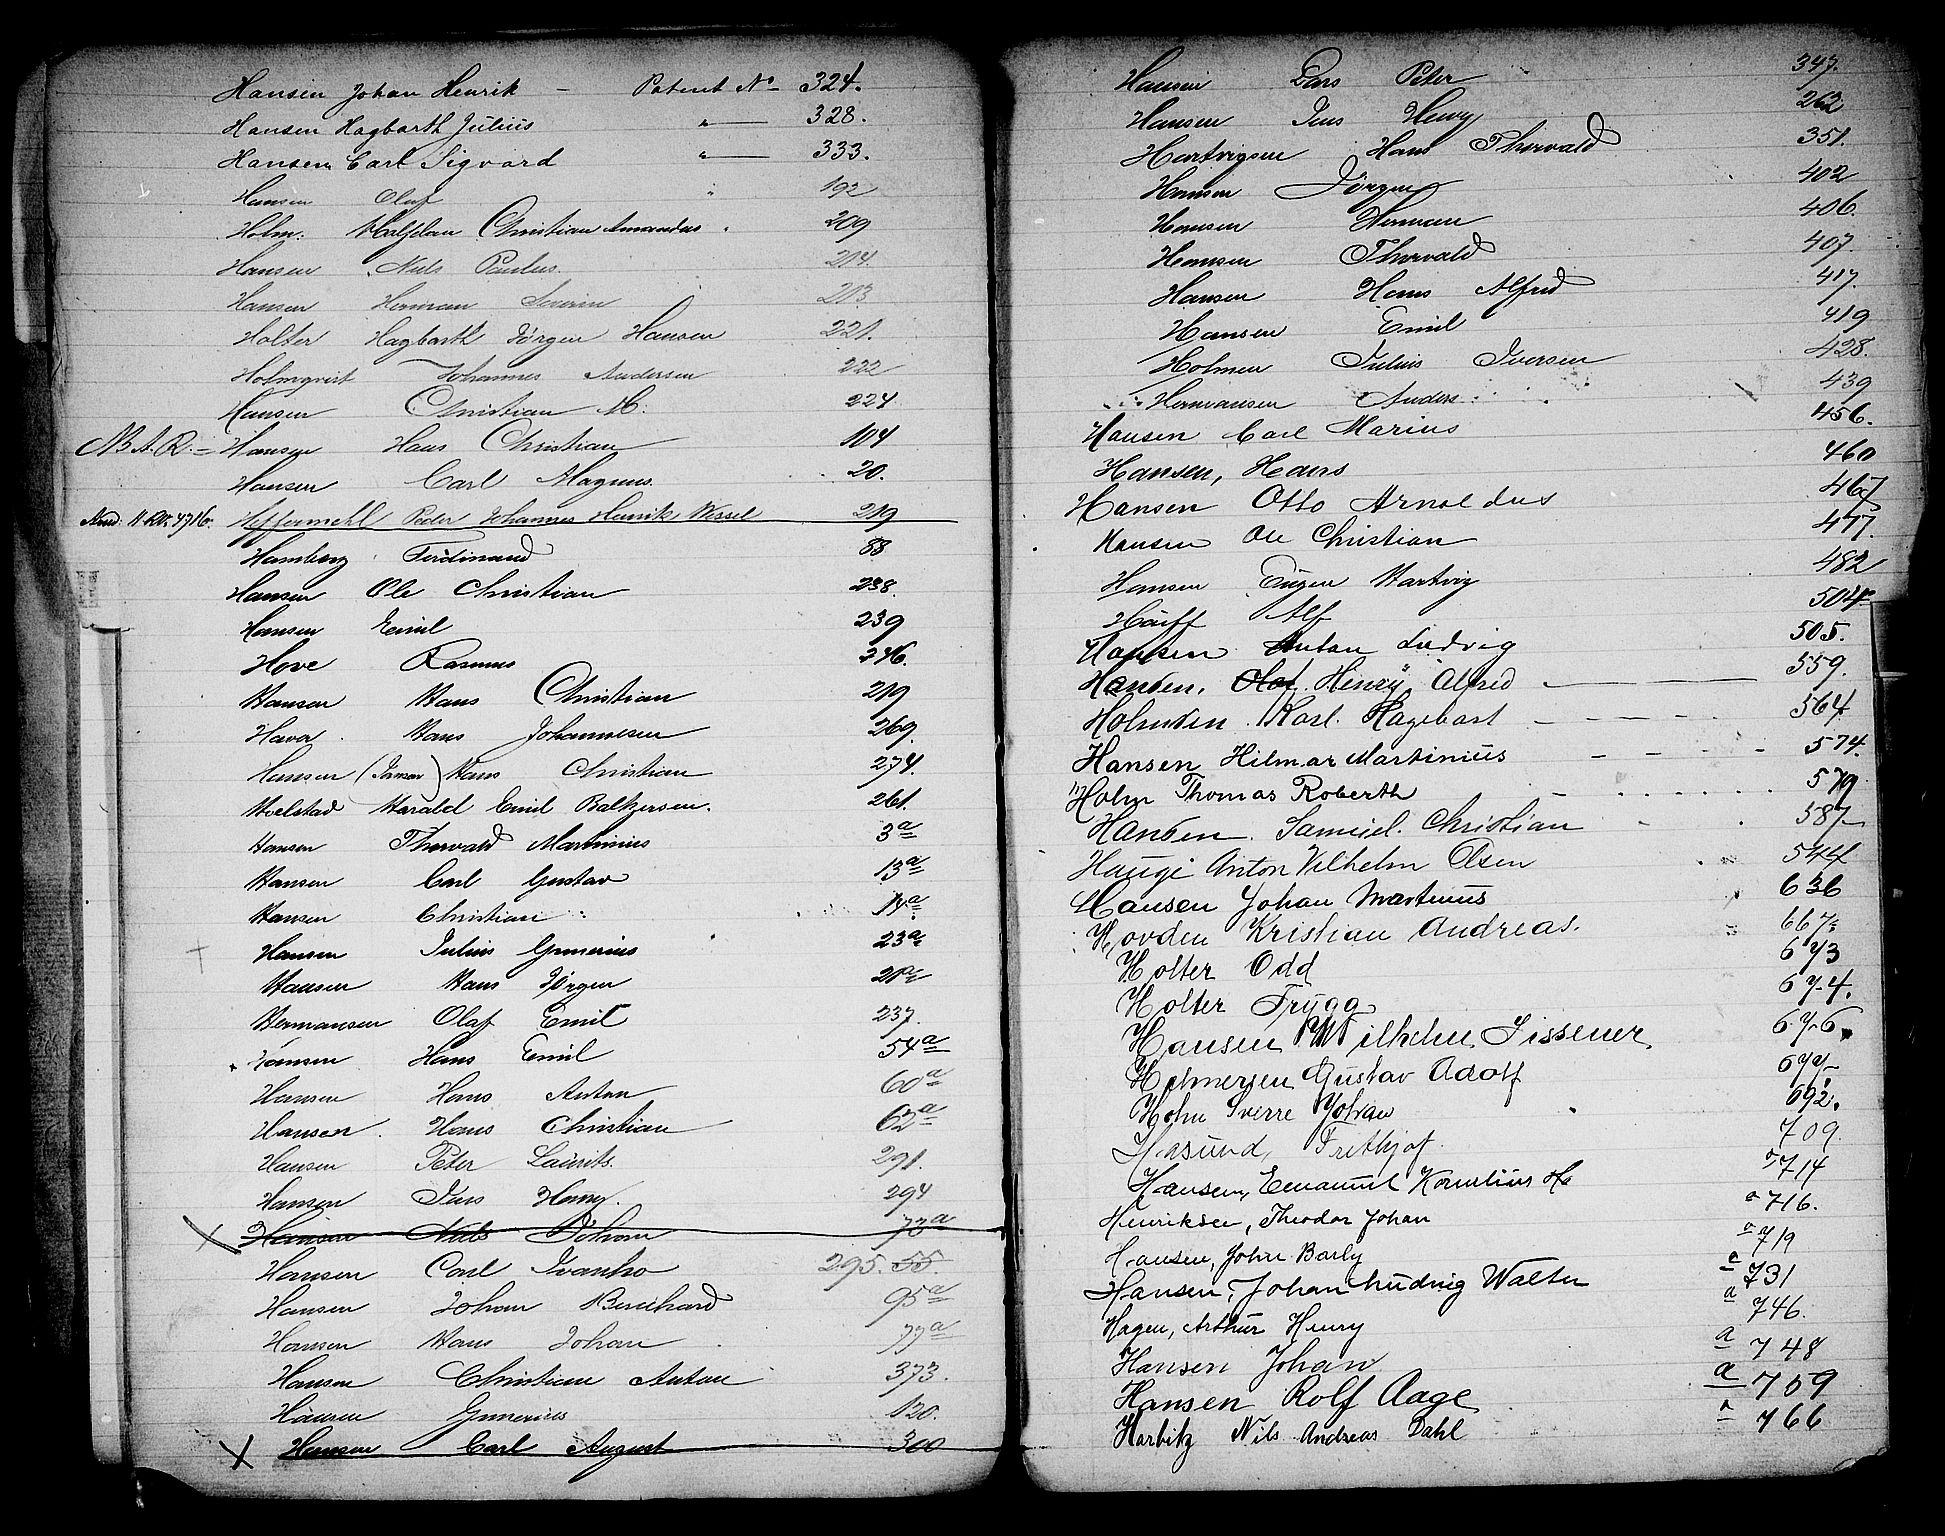 Hansen Johan Henrik - Patent No 324.
Hansen Hagbarth Julius " 328.
Hansen Carl Sigvard " 333.
Hansen Olaf " 192
Holm. Halfdan Christian Amandus " 209
Hansen Nils Paulus 214.
Hansen Herman Severin 213.
Holter Hagbarth Jørgen Hansen 221.
Holmqvist Johannes Andersen 222
Hansen Christian M. 224
N.B. A.R. = Hansen Hans Christian 104
Hansen Carl Magnus. 20.
Heffermehl Peder Johannes Henrik Wessel 219
Hamberg Ferdinand 88
Hansen Ole Christian 238.
Hansen Emil 239
Hove Rasmus 246.
Hansen Hans Christian 219
Hans Johannesen 269.
Hansen (Jansen) Hans Christian 274.
Harald Emil Balkersen. 261.
Hansen Thorvald Martinius 3a
Hansen Carl Gustav 13a
Hansen Christian 14a
Hansen Julius Gunerius 23a
Hansen Hans Jørgen
Hermansen Olaf Emil 237.
Hansen Hans Emil 54a
Hansen Hans Anton 60a
Hansen. Hans Christian 62a
Hansen Peter Laurits. 291.
Hansen Jens Henry. 294
Hansen Nils Johan 73a
Hansen Carl Ivanho 295. 55.
Hansen Johan Bernhard 95a
Hansen Hans Johan 77a
Hansen Christian Anton 373.
Hansen Gunerius 120.
X Hansen Carl August 300
Hansen Lars Peter 347.
Hansen Jens Henry 262
Hartvigsen Hans Thorvald 351.
Hansen Jørgen 402
Hansen Herman 406.
Hansen Thorvald 407
Hansen Hans Alfred 417.
Hansen Emil 419
Holmen Julius Iversen 428.
Hermansen Anders 439
Hansen Carl Marius 456.
Hansen, Hans 460
Hansen Otto Arnoldus 467
Hansen Ole Christian 477.
Hansen Eugen Hartvig 482
Hauff Alf 504
Hansen Anton Ludvig 505.
Hansen. Olaf Henry Alfred 559.
Holmsen. Karl. Hagebart 564
Hansen Hilmar Martinius 574.
Holm Thomas Roberth 579
Hansen. Samuel. Christian 587
Hauge Anton Vilhelm Olsen 544
Hansen Johan Martinius 636
Hovden Kristian Andreas. 667
Holter Odd 673
Holter Trygg 674.
Hansen Wilhelm Sissener 676.
Helmersen Gustav Adolf 677
Holm Sverre Johan 692.
Frithjof 709.
Hansen, Emanuel Kornelius Hs a 714
Henriksen, Theodor Johan a 716.
Hansen, John Barly a 719
Hansen, Johan Ludvig Walter a 731
Hagen, Arthur Henry a 746.
Hansen Johan a 748
Hansen Rolf Aage a 759
Harbitz Nils Andreas Dahl a 766